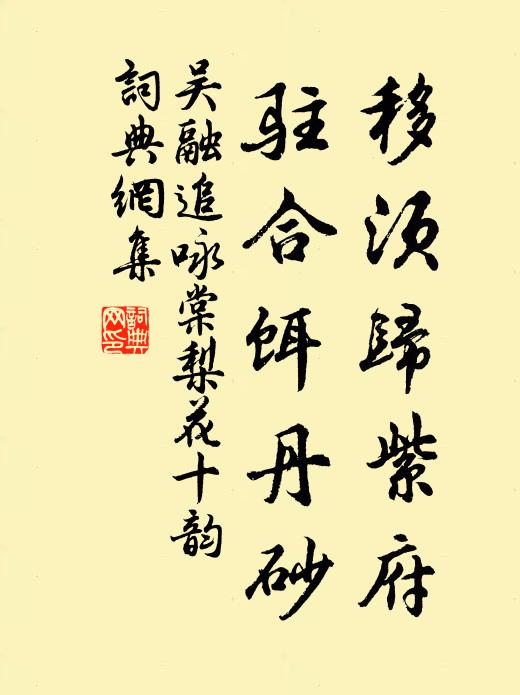 移須歸紫府
駐合餌丹砂
吳融追咏棠梨花十韵
詞典網集
詞典网印